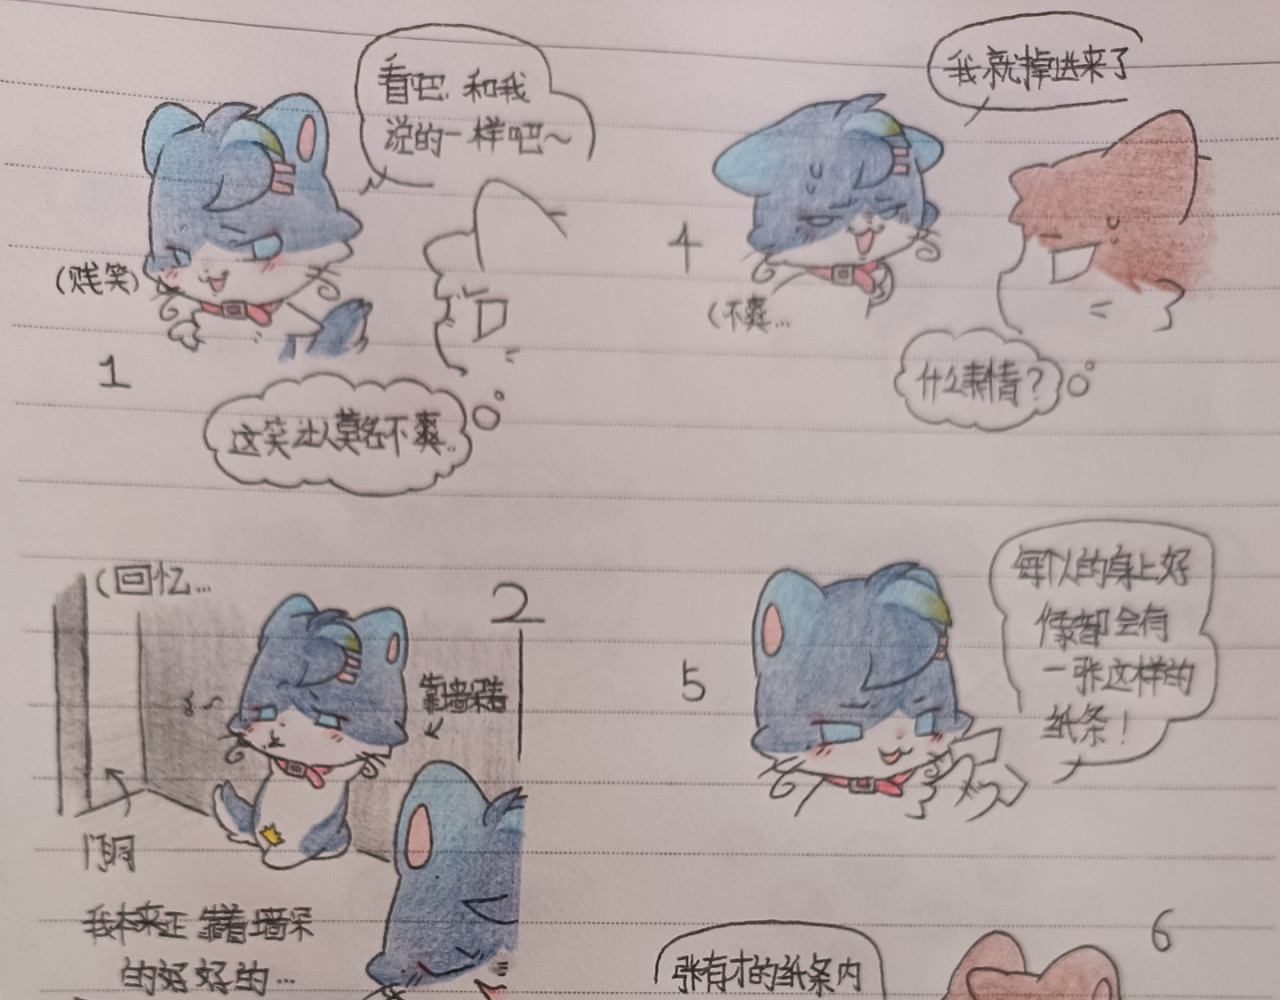 看吧.和我
说的一样吧~
(贱笑)
1
这笑让人莫名不爽..
(回忆...
2
靠墙呆着
门洞
我本来正靠着墙呆
的好好的...
我就掉进来了
4
(不爽...
什么表情?
5
每个人的身上好
像都会有
一张这样的
纸条!
6
张有才的纸条内